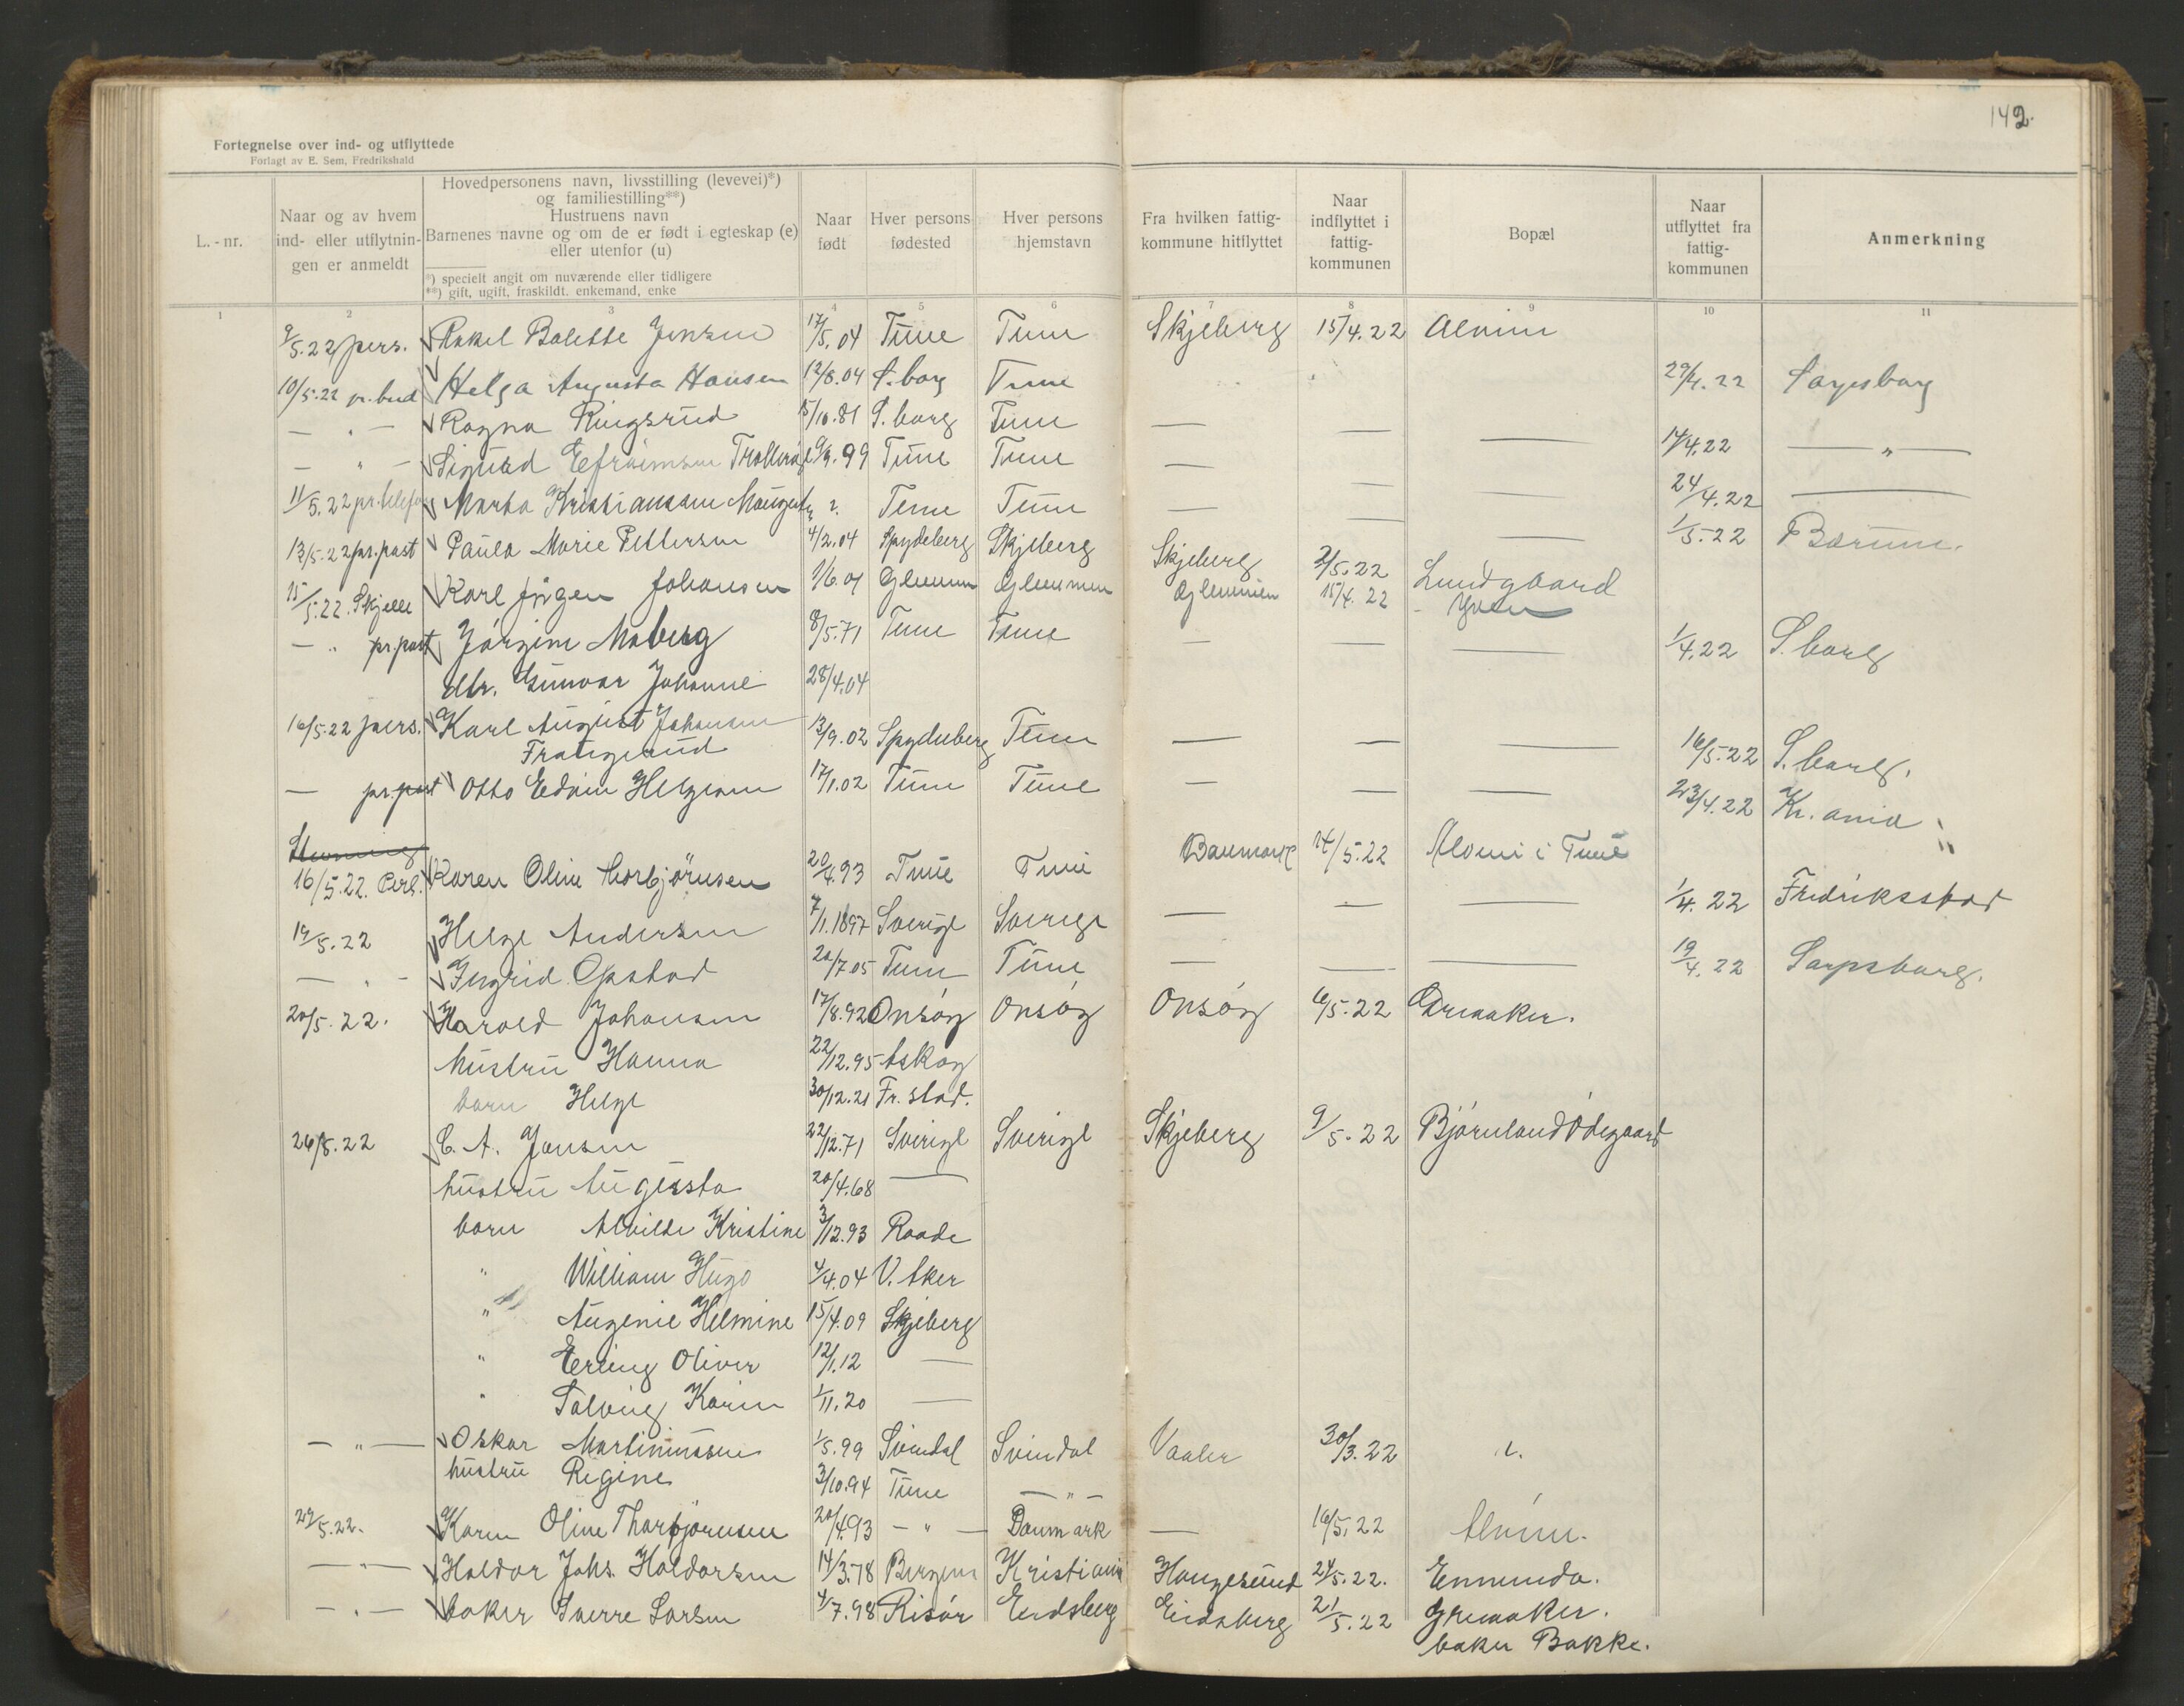 142.
Fortegnelse over ind- og utflyttede
Forlagt av E. Sem, Fredrikshald
L.-nr.
Naar og av hvem ind- eller utflytnin-gen er anmeldt
Hovedpersonens navn, livsstilling (levevei)*)
og familiestilling**)
Hustruens navn
Barnenes navne og om de er født i egteskap (e)
eller utenfor (u)
*) specielt angit om nuværende eller tidligere
**) gift, ugift, fraskildt. enkemand, enke
Naar født
Hver persons fødested
Hver persons hjemstavn
Fra hvilken fattig-kommune hitflyttet
Naar indflyttet i fattig-kommunen
Bopæl
Naar utflyttet fra fattig-kommunen
Anmerkning
1 2 3 4 5 6 7 8 9 10 11
9/5.22 pers. Rakel Balette Jensen 17/5.04 Tune Tune Skjeberg 15/4.22 Alvim
10/5.22 pr. bud Helga Augusta Hansen 12/8.04 S.borg Tune 29/4.22 Sarpsborg
— " — Ragna Ringsrud 15/10.81 S.borg Tune — — — 14/4.22 — " —
— " — Sigurd Efraimsen 9/9.99 Tune Tune — — — 24/4.22 —
11/5.22 pr. telefon Marta Kristiansen ?. Tune Tune — — — 1/5.22 Bærum.
13/5.22 pr. post Paula Marie Pettersen 4/2.04 Spydeberg Skjeberg Skjeberg 2/5.22 Lundgaard
15/5.22. Karl Jörgen Johansen 1/6.01 Glemmen Glemmen Glemmen 15/4.22 - Yven
— " pr. post Jörgine Moberg 8/5.71 Tune Tune — — — 1/4.22 S.borg
dtr. Gunvor Johanne 28/4.04
16/5.22 pers. Karl August Johansen 13/9.02 Spydeberg Tune — — — 16/5.22 S.borg.
— pr. post Otto Edvin Helgesen 17/1.02 Tune Tune — — — 23/4.22 Kr.ania
16/5.22. Karen Oline Thorbjörnsen 20/4.93 Tune Tune Danmark 14/5.22 Alvim i Tune
19/5.22 Helge Andersen 7/1.1897 Sverige Sverige — — — 1/4.22 Fredriksstad
— " — Ingrid Opstad 20/7.05 Tune Tune — — — 19/4.22 Sarpsborg.
20/5.22. Harald Johansen 17/8.92 Onsöy Onsöy Onsöy 6/5.22 Greaaker.
hustru Hanna 22/12.95 Askog
barn Helge 30/12.21 Fr.stad.
26/5.22 C. A. Jansen 22/12.71 Sverige Sverige Skjeberg 9/5.22 Björnland Ödegaard
hustru Augusta 20/4.68 —
barn Alvilde Kristine 3/12.93 Raade
" William Hugo 4/4.04 V. Aker
" Augenie Helmine 15/4.09 Skjeberg
" Erling Oliver 12/1.12 —
" Solveig Karin 1/11.20 —
— " — Oskar Martinussen 1/5.99 Svindal Svindal Vaaler 30/3.22 ?.
hustru Regine 3/10.94 Tune — " —
29/5.22. Karen Oline Thorbjörnsen 20/4.93 — " — Danmark — 16/5.22 Alvim.
— " — Haldor Johs. Haldorsen 14/3.78 Bergen Kristiania Haugesund 24/5.22. Enmunda.
— " — baker Sverre Larsen 4/7.98 Risör Eidsberg Eidsberg 21/5.22 Greaaker.
baker Bakke.